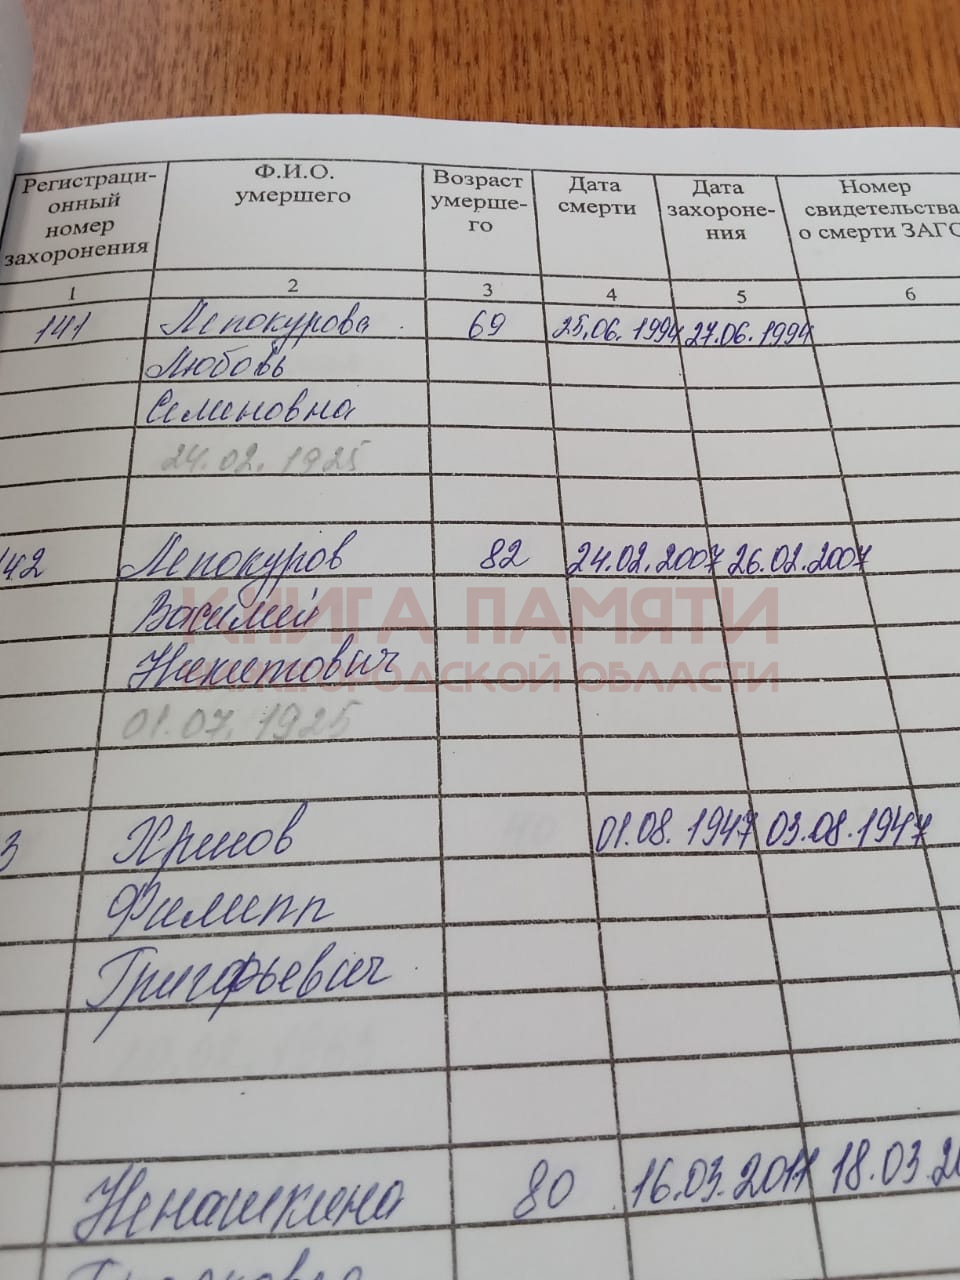 Регистраци- Ф.И.О. Возраст Дата Дата Номер
онный умершего умерше- смерти захороне- свидетельства
номер го ния о смерти ЗАГС
захоронения
1 2 3 4 5 6
141 Лепокурова 69 25.06.1994 27.06.1994
Любовь
Семеновна
24.02.1925
142 Лепокуров 82 24.02.2007 26.02.2007
Василий
КНИГА ПАМЯТИ
Никитович
НИЖЕГОРОДСКОЙ ОБЛАСТИ
01.07.1925
3 01.08.1947 03.08.1947
Филипп
Григорьевич
Ненашкина 80 16.03.2011 18.03.20